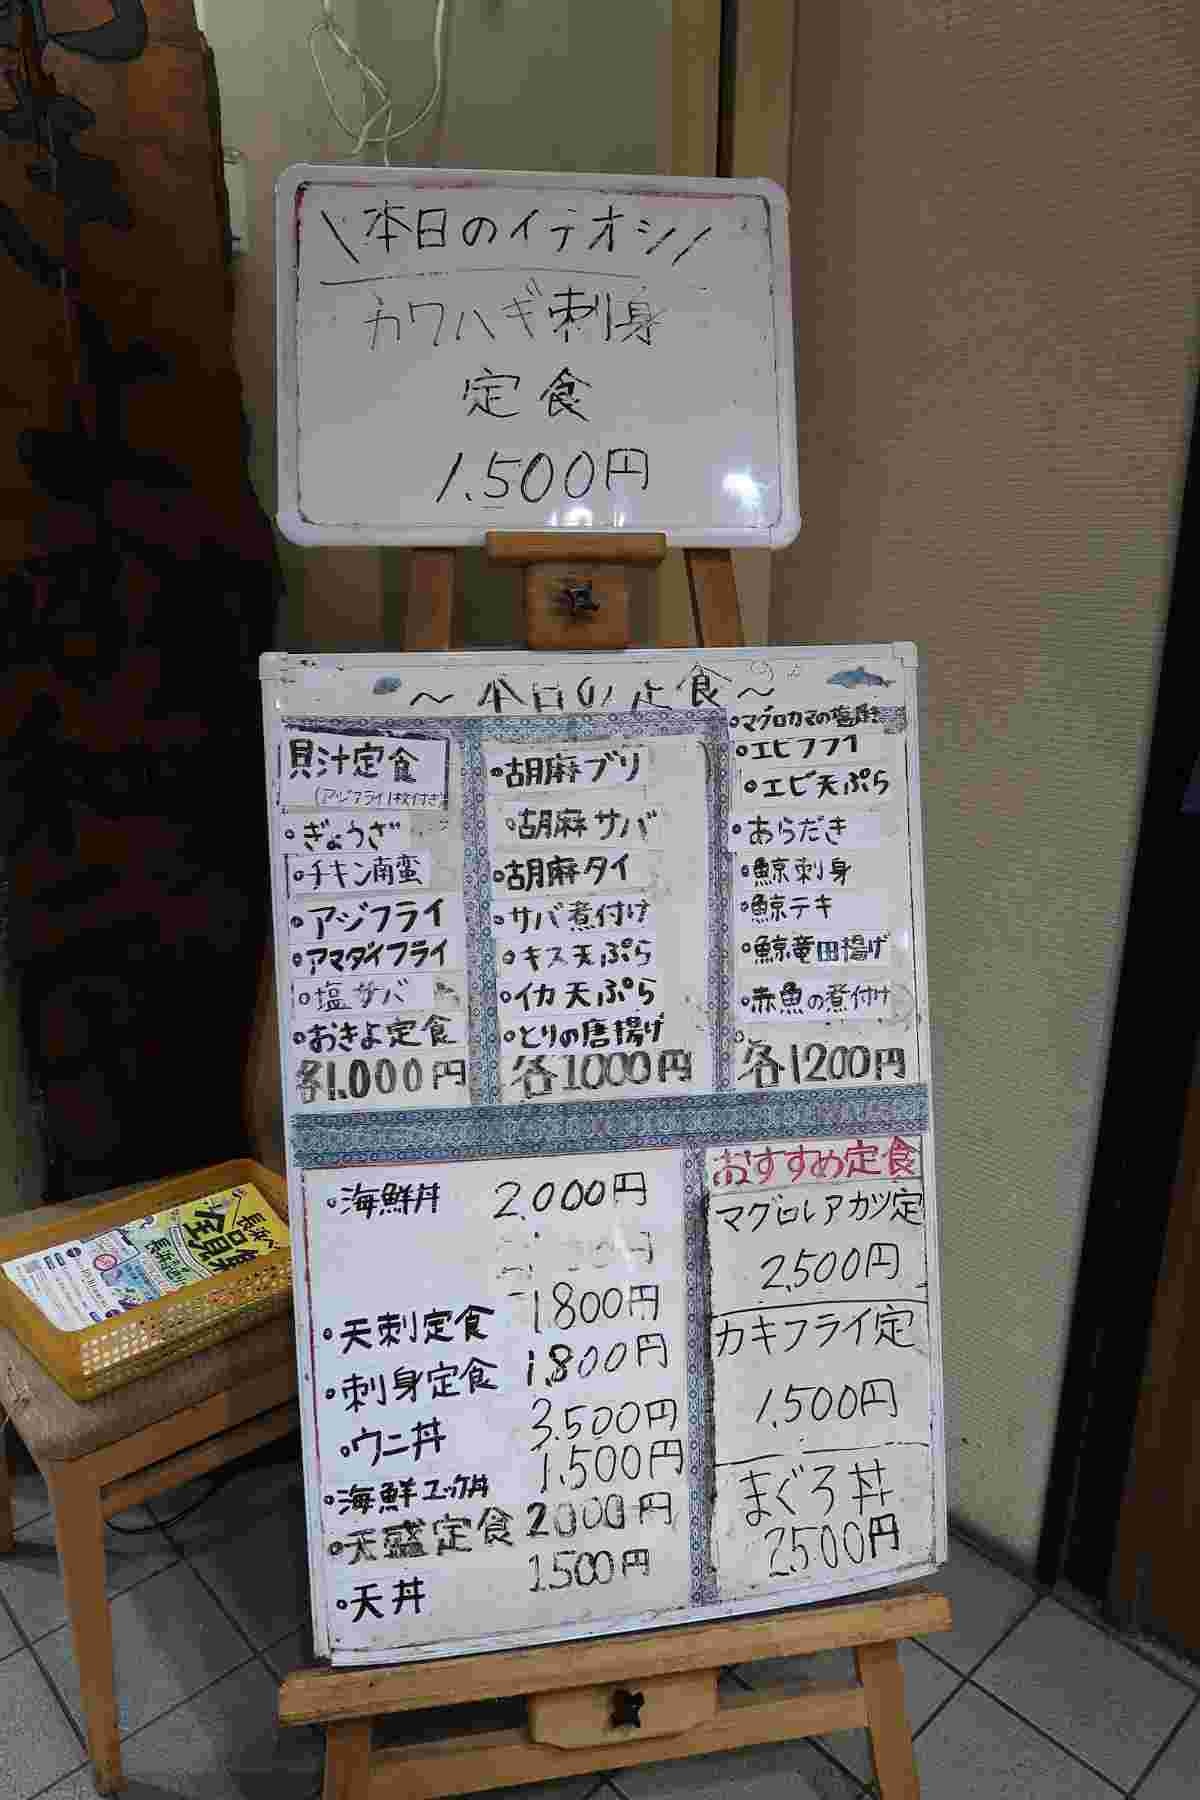 ＼本日のイチオシ／
カワハギ刺身
定食
1,500円
～本日の定食～
貝汁定食
(アジフライ1枚付き)
・ぎょうざ
・チキン南蛮
・アジフライ
・アマダイフライ
・塩サバ
・おきよ定食
各1,000円
・胡麻ブリ
・胡麻サバ
・胡麻タイ
・サバ煮付け
・キス天ぷら
・イカ天ぷら
・とりの唐揚げ
各1000円
・マグロカマの塩焼き
・エビフライ
・エビ天ぷら
・あらだき
・鯨刺身
・鯨テキ
・鯨竜田揚げ
・赤魚の煮付け
各1200円
・海鮮丼 2,000円
・天刺定食 1,800円
・刺身定食 1,800円
・ウニ丼 3,500円
・海鮮ユッケ丼 1,500円
・天盛定食 2000円
・天丼 1,500円
おすすめ定食
マグロレアカツ定
2,500円
カキフライ定
1,500円
まぐろ丼
2,500円